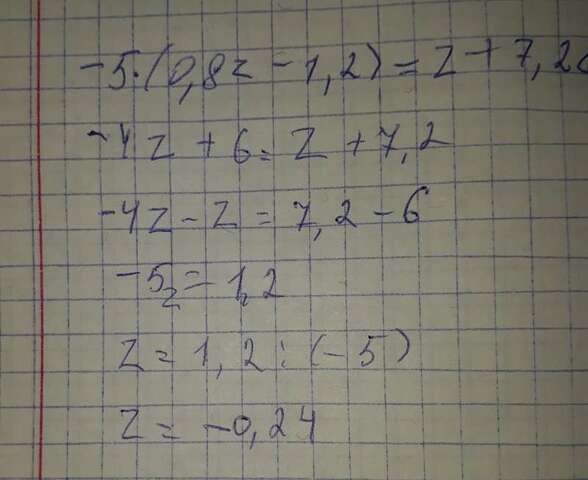 -5·(0,8z - 1,2) = z + 7,2
-4z + 6 = z + 7,2
-4z - z = 7,2 - 6
-5z = 1,2
z = 1,2 : (-5)
z = -0,24